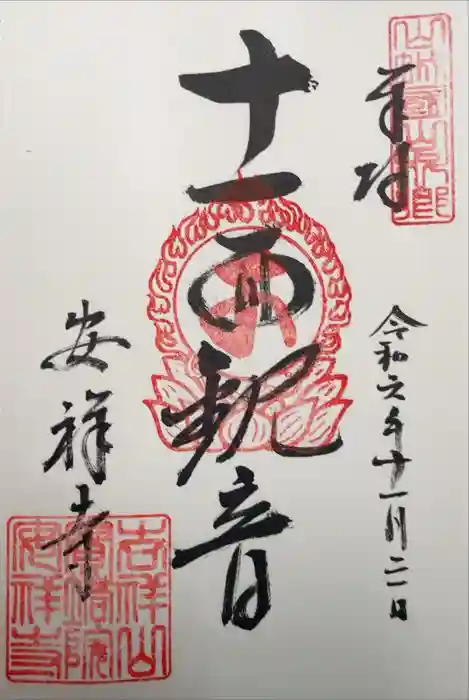 奉拝
令和六年十一月二日
十一面観音
安祥寺
吉祥山
宝塔院
安祥寺